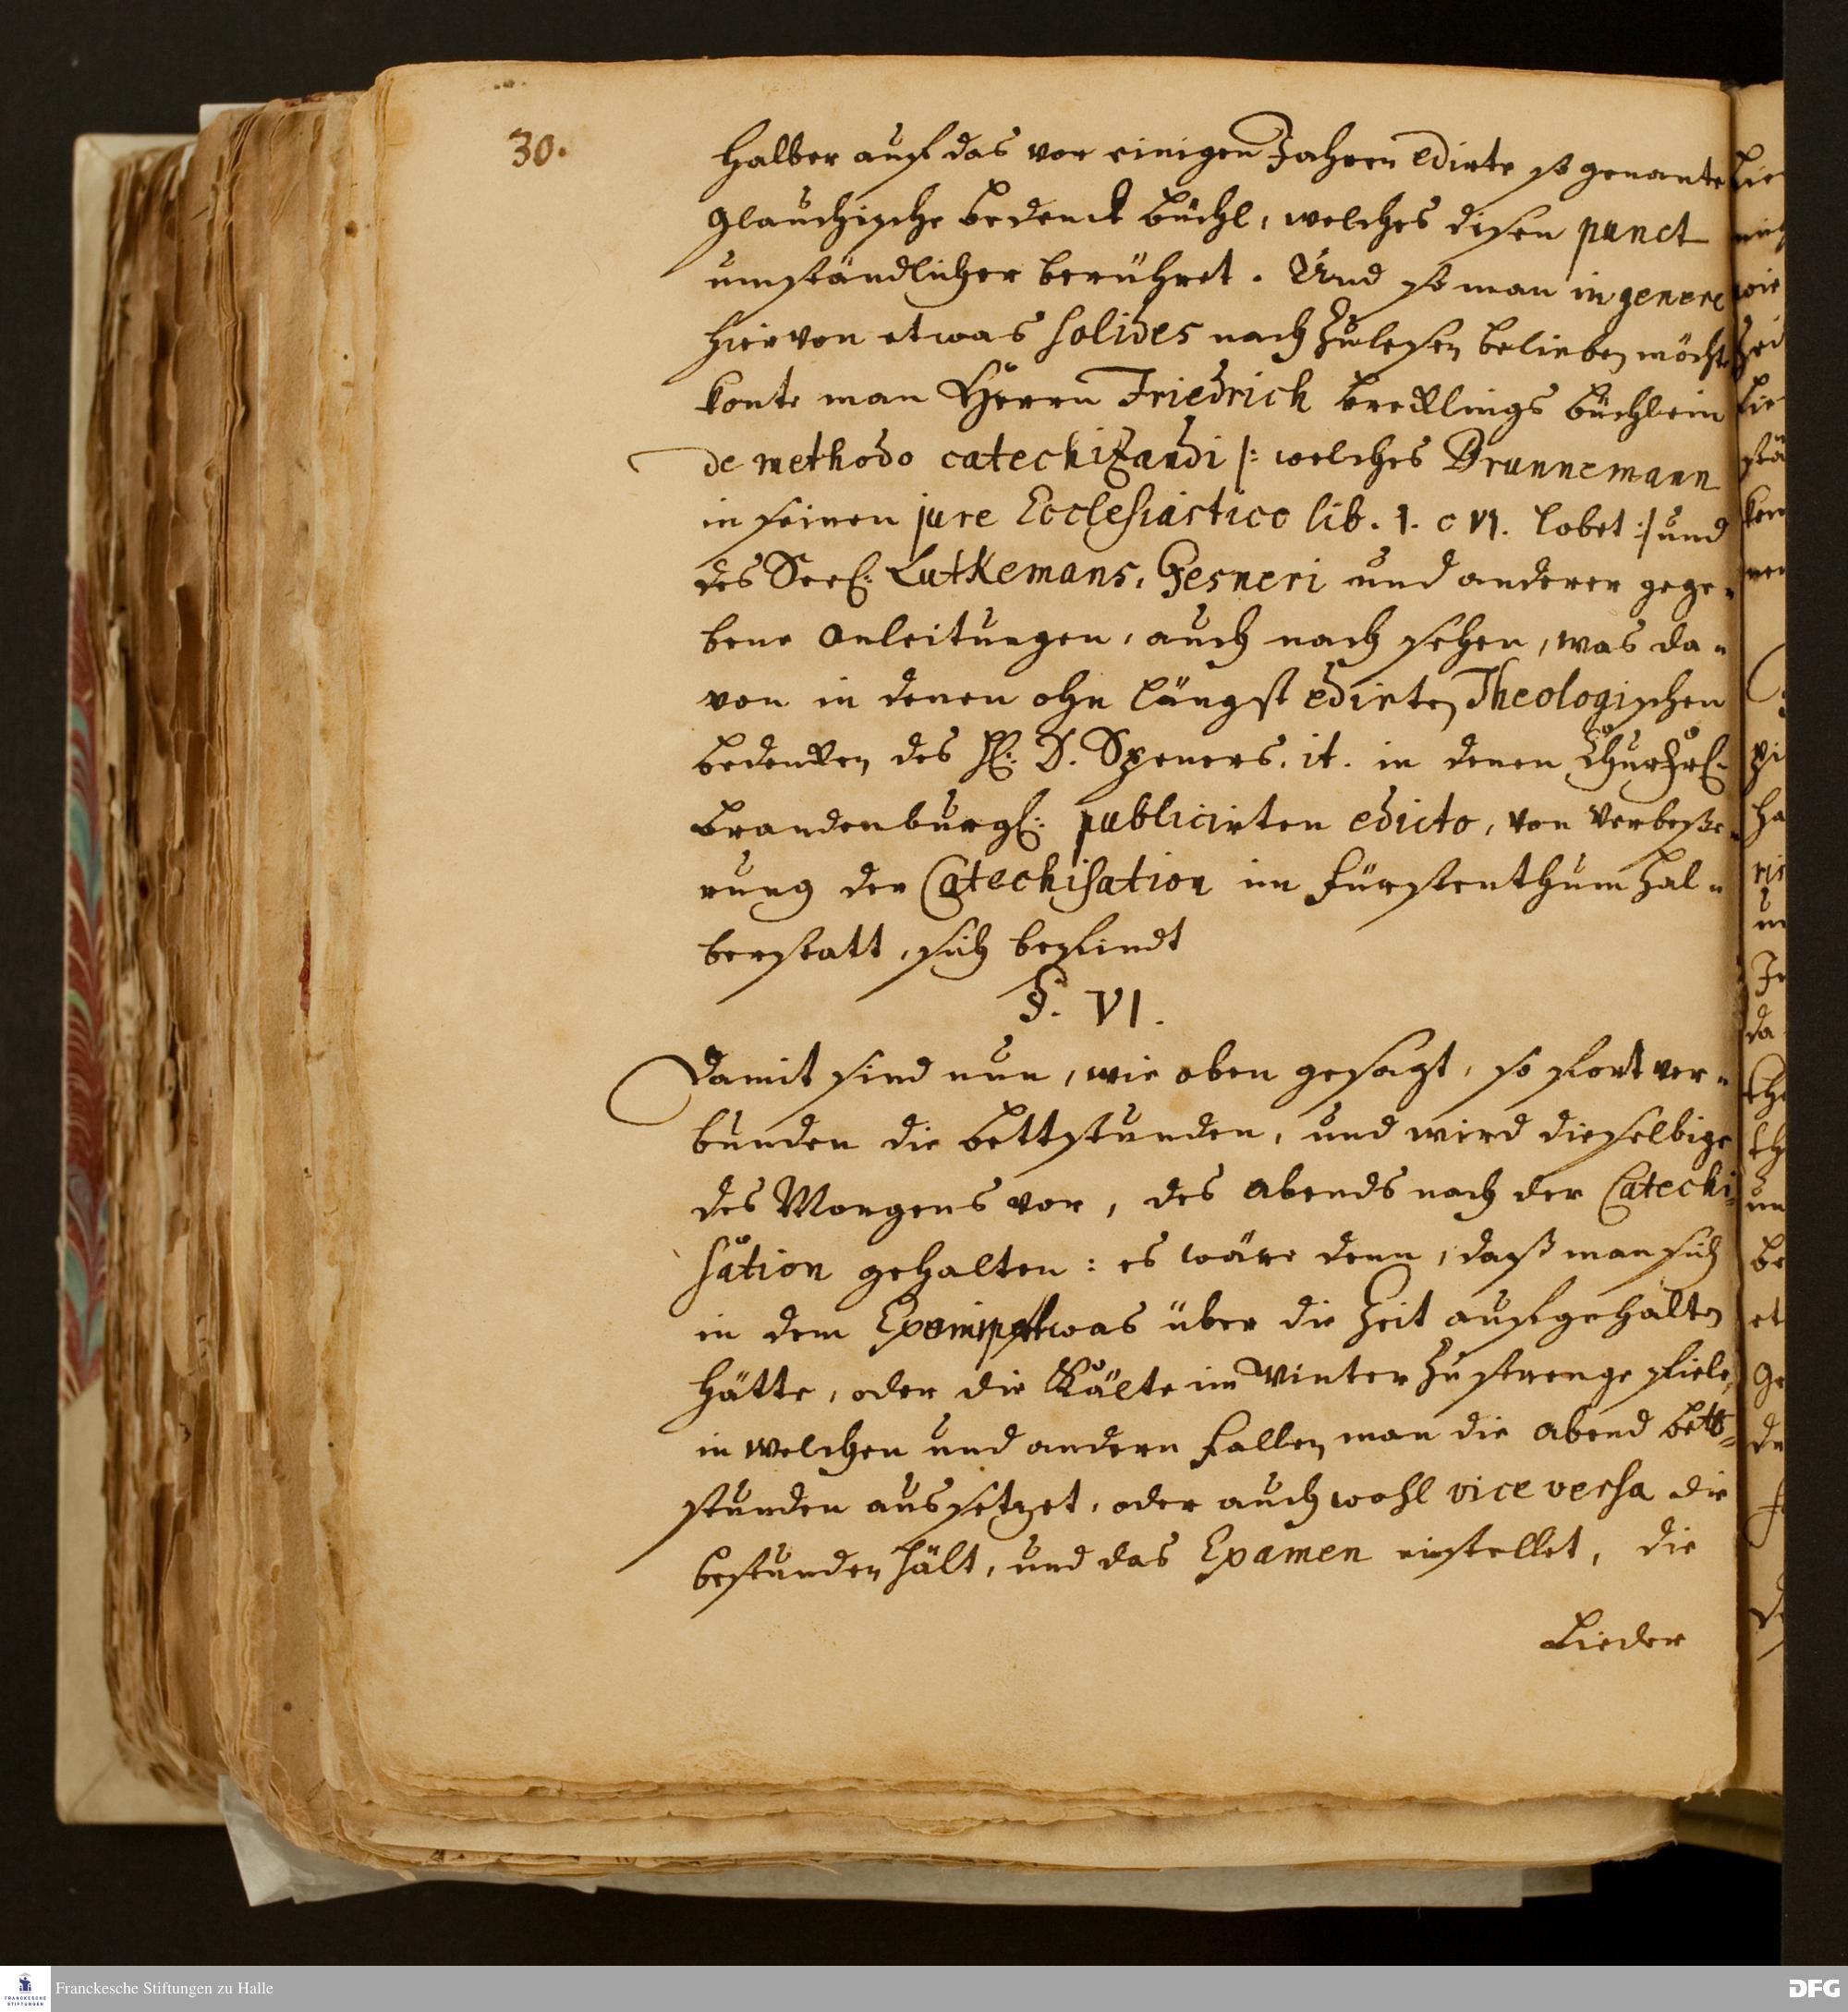 30.
halber auf das vor einigen Jahren edirte so genante
Glauchische bedenck büchl, welches disen punct
umständlicher berühret. Und so man in genere
hiervon etwas solides nach zulesen belieben möchte
konte man Herrn Friedrich brecklings büchlein
de methodo catechizandi /: welches Brunnemann
in seinen jure Ecclesiastico lib. 1. c VI. lobet :/ und
des Seel: Lutkemans, Gesneri und anderer gege-
bene anleitungen, auch nach sehen, was da-
von in denen ohn längst edirten Theologischen
bedencken des H: D. Speners. it. in denen Churfrl:
brandenburgl: publicirten edicto, von verbeße-
rung der Catechisation im fürstenthum Hal-
berstatt, sich befindt
§. VI.
Damit sind nun, wie oben gesagt, so fort ver-
bunden die bettstunden, und wird dieselbige
des Morgens vor, des abends nach der Catechi-
sation gehalten: es wäre denn, daß man sich
in dem etwas über die Zeit aufgehalten
hätte, oder die Kälte im Winter zu strenge fiele,
in welchen und andern fallen man die abend bett-
stunden aussetzet, oder auch wohl vice versa die
bestunden hält, und das Examen einstellet, die
Lieder
Franckesche Stiftungen zu Halle
FRANCKESCHE
STIFTUNGEN
DFG